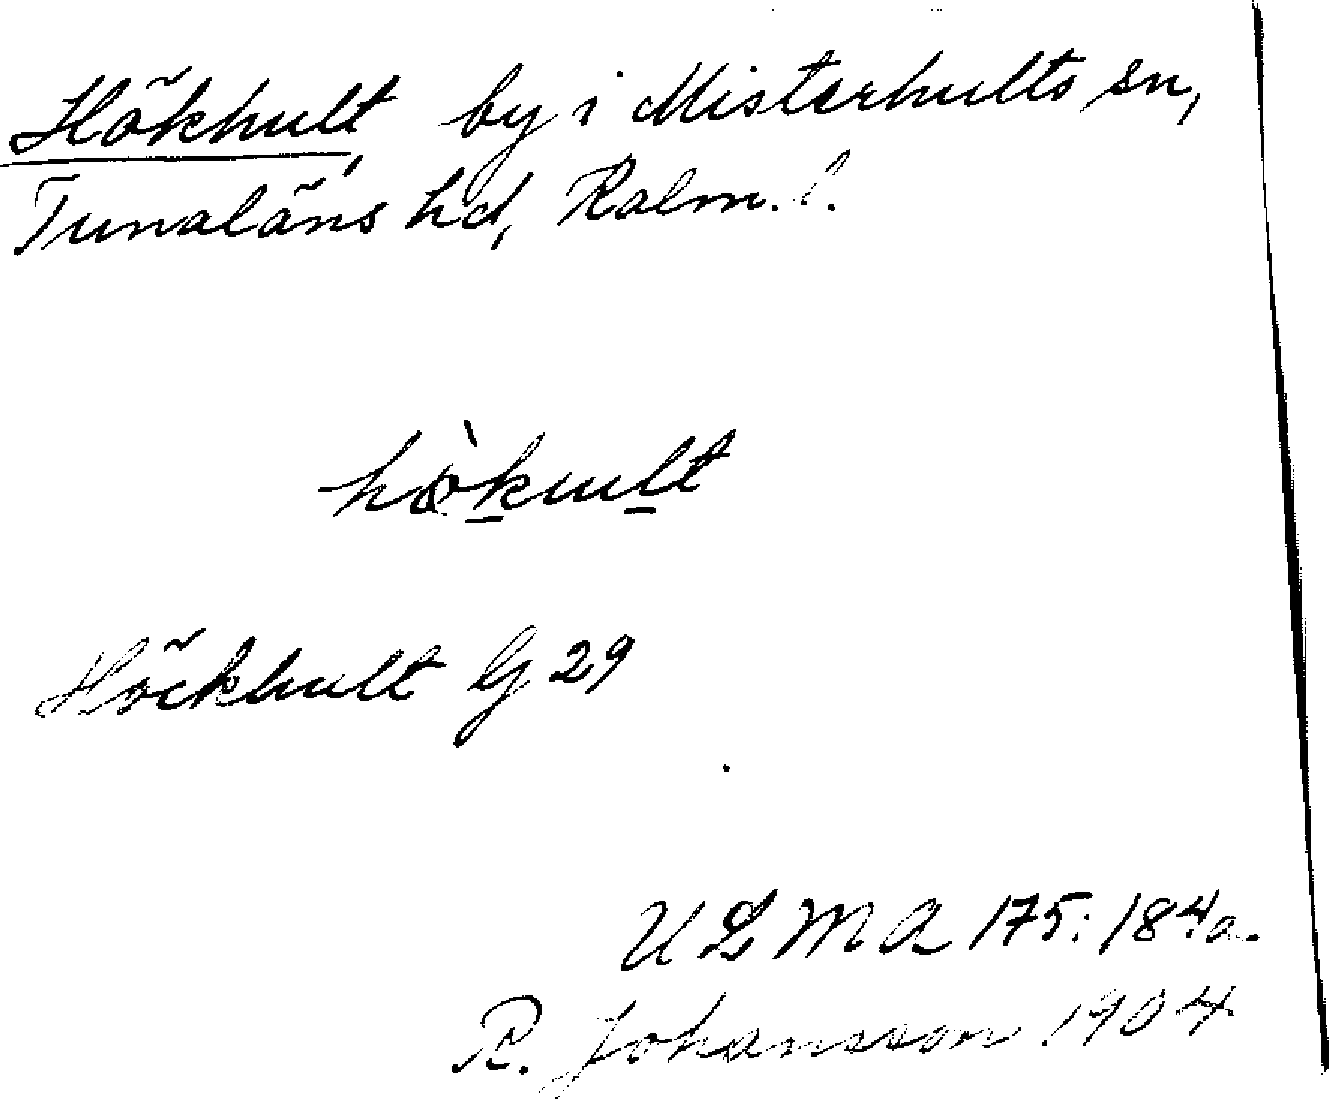 Hökhult, by i Misterhults sn,
Tunaläns hd, Kalm. l.
hökult
Höckhult G 29
ULMA 175:184a.
R. Johansson 1904